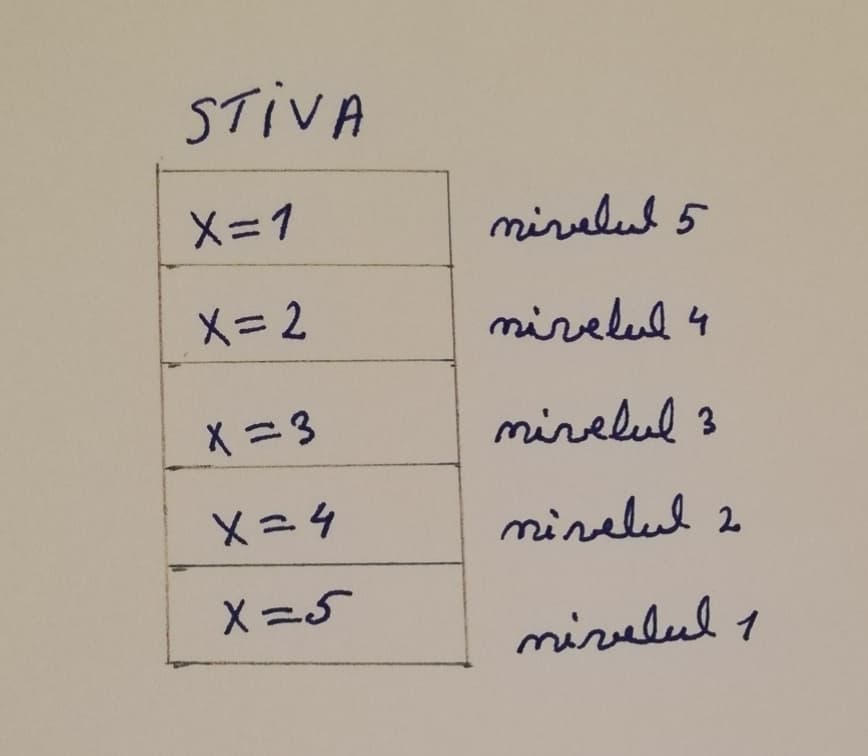 STIVA
x=1 nivelul 5
x=2 nivelul 4
x=3 nivelul 3
x=4 nivelul 2
x=5 nivelul 1